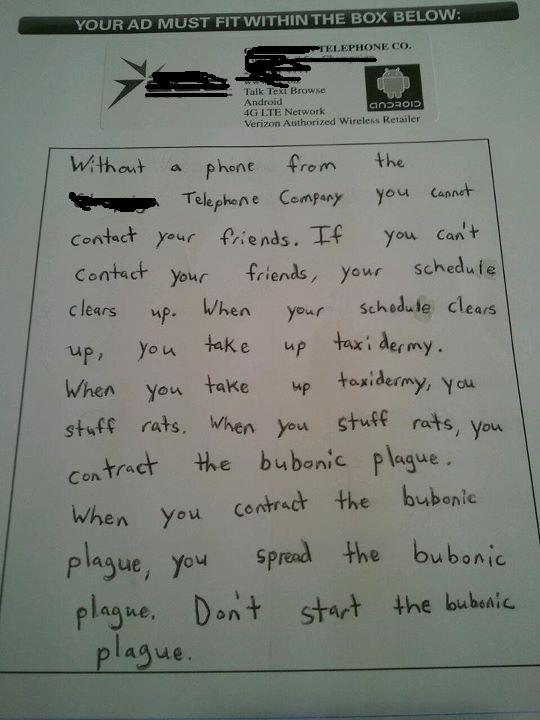 YOUR AD MUST FIT WITHIN THE BOX BELOW:
TELEPHONE CO.
Talk Text Browse
Android
4G LTE Network
Verizon Authorized Wireless Retailer
ANDROID
Without a phone from the
Telephone Company you cannot
contact your friends. If you can't
contact your friends, your schedule
clears up. When your schedule clears
up, you take up taxidermy.
When you take up taxidermy, you
stuff rats. When you stuff rats, you
contract the bubonic plague.
When you contract the bubonic
plague, you spread the bubonic
plague. Don't start the bubonic
plague.